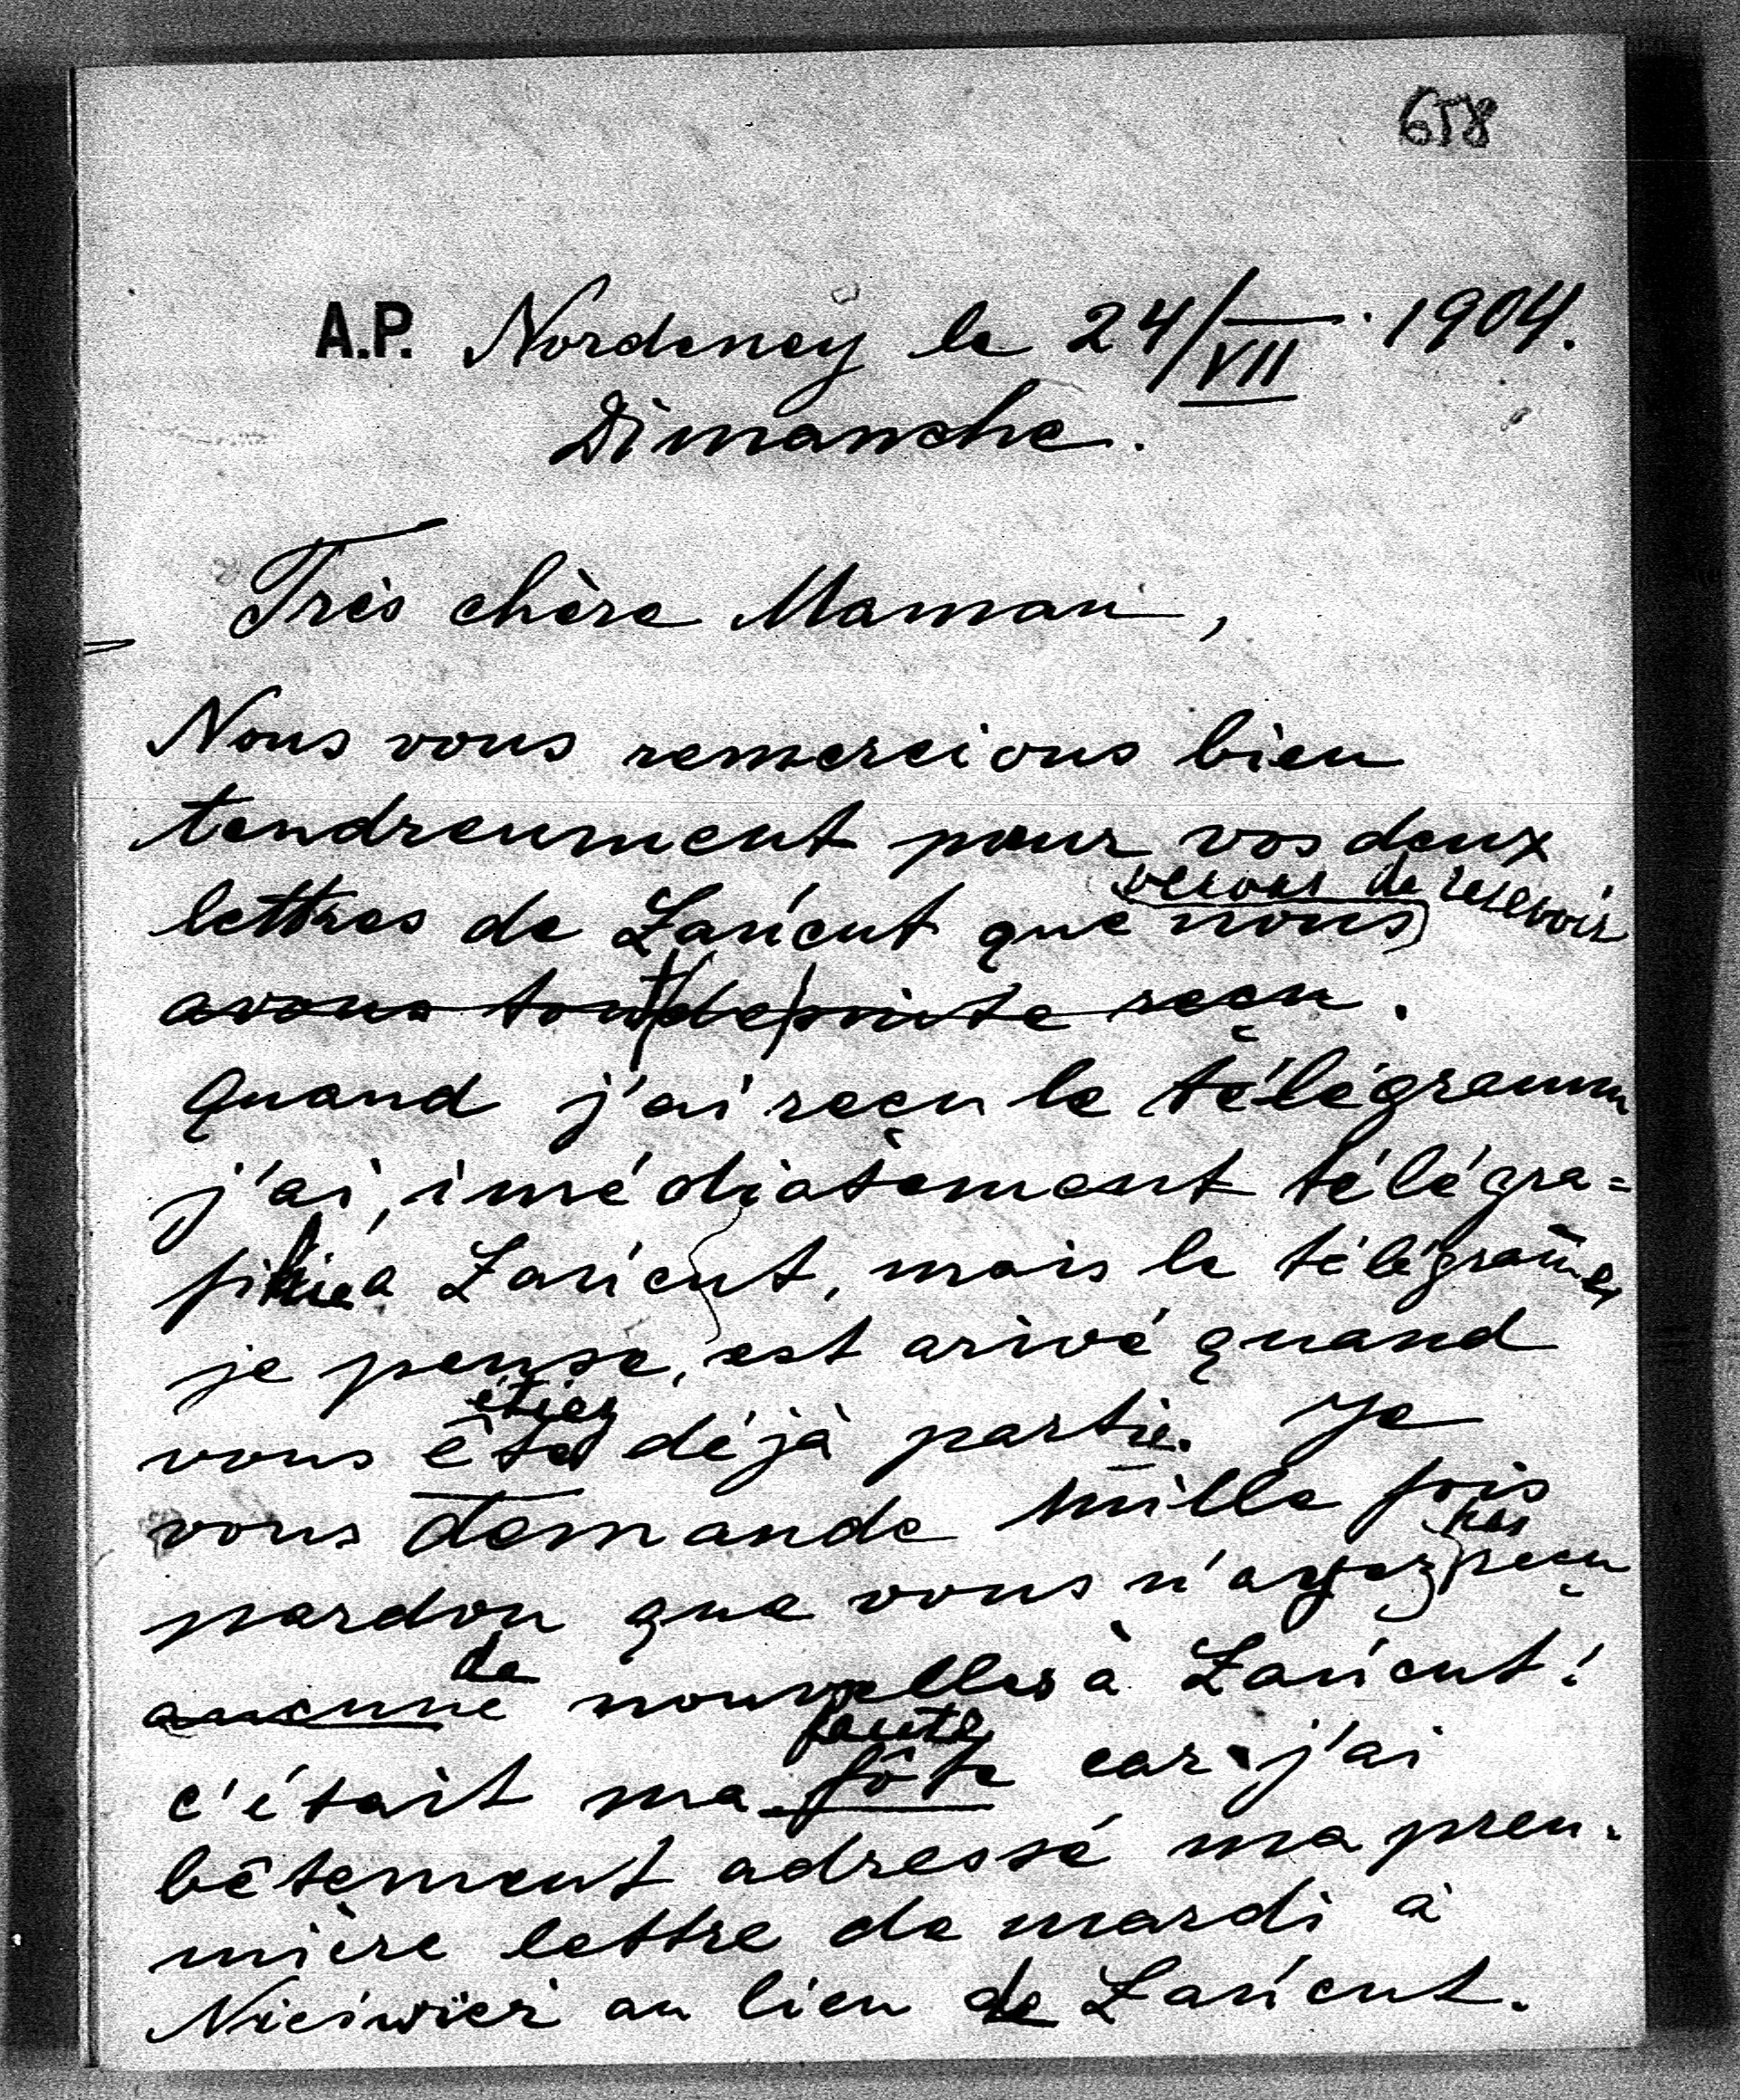 658
A.P. Nordeney le 24/VII 1904.
Dimanche.
Très chère Maman,
Nous vous remercions bien
tendreument pour vos deux
venons de recevoir
lettres de Łańcut que nous
avons tout de pointe reçu.
Quand j'ai reçu le télégramm
j'ai, imédiatement télégra=
phié a Łańcut, mais le télégrame
je pense, est arivé quand
étiez
vous ête déjà partie. Je
vous demande mille fois
pas
pardon que vous n'ayez reçu
de
aucune nouvelles à Łańcut!
faute
c'était ma fôte car j'ai
bêtement adressé ma preu-
mière lettre de mardi à
Nieświer au lieu de Łańcut.